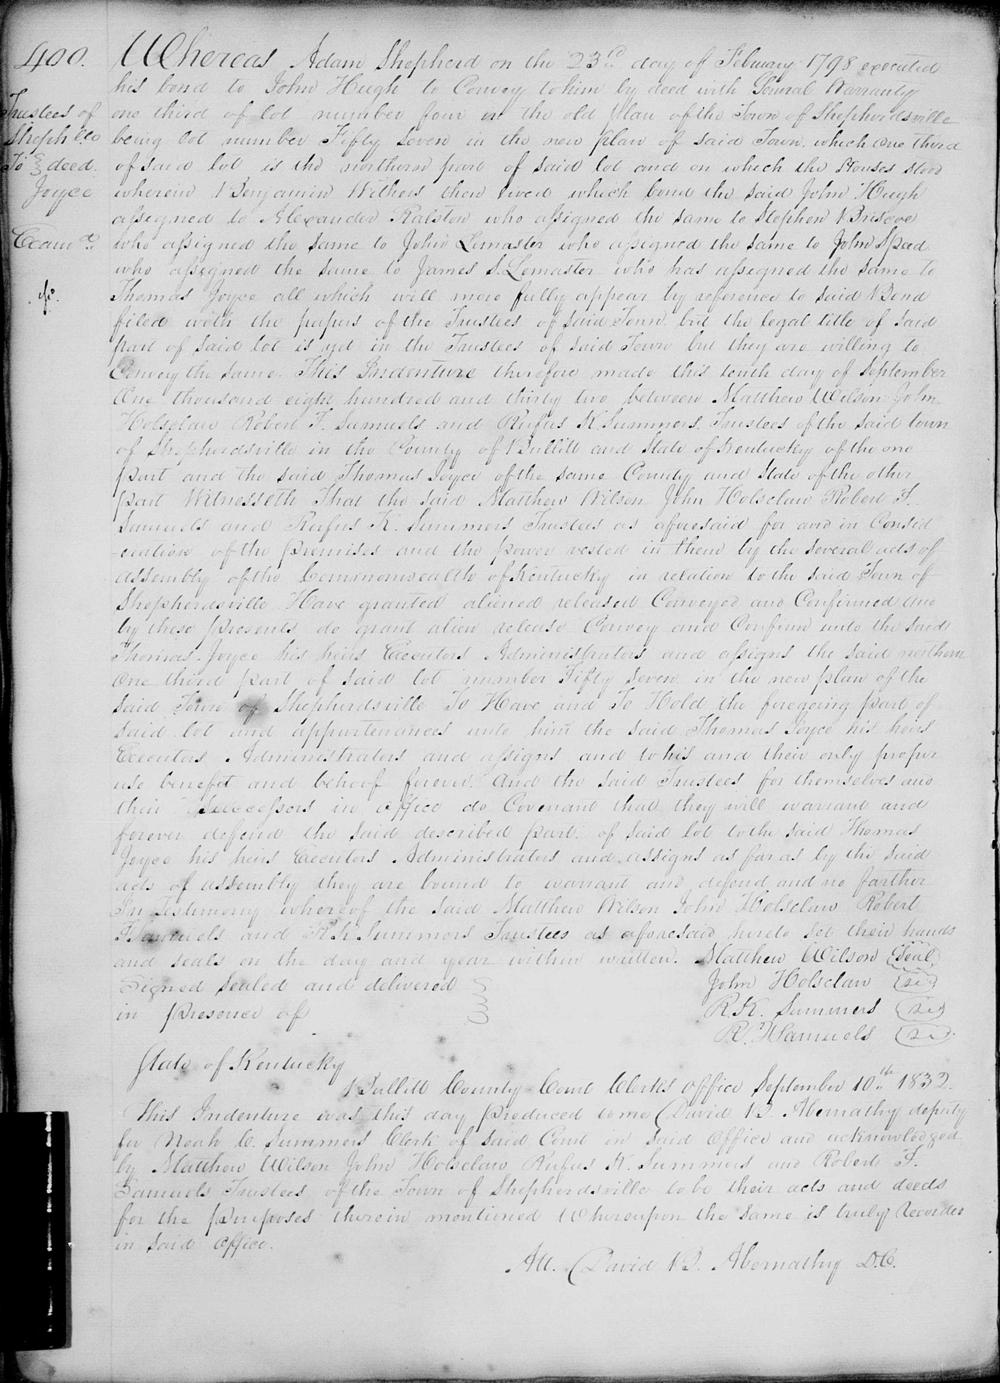 400.
Trustees of
Sheph &c
To } deed.
Joyce
Exam d.
Whereas Adam Shepherd on the 23rd day of February 1798 executed
his bond to John Hugh to Convey to him by deed with General Warranty
one third of lot number four in the old plan of the Town of Shepherdsville
being lot number Fifty Seven in the new plan of said Town which one third
of said lot is the northern part of said lot and on which the Houses stood
wherein Benjamin Withers then lived which bond the said John Hugh
assigned to Alexander Ralston who assigned the same to Stephen Briscoe
who assigned the same to John Lemaster who assigned the same to John Spad
who assigned the same to James S. Lemaster who has assigned the same to
Thomas Joyce all which will more fully appear by reference to said Bond
filed with the papers of the Trustees of said Town but the legal title of said
part of said lot is yet in the Trustees of said Town but they are willing to
Convey the same. This Indenture therefore made this tenth day of September
One thousand eight hundred and thirty two between Matthew Wilson John
Holsclaw Robert F. Samuels and Rufus K. Summers, Trustees of the said town
of Shepherdsville in the County of Bullitt and State of Kentucky of the one
part and the said Thomas Joyce of the same County and State of the other
part Witnesseth That the said Matthew Wilson John Holsclaw Robert F.
Samuels and Rufus K. Summers Trustees as aforesaid for and in Consid
-eration of the premises and the power vested in them by the several acts of
assembly of the Commonwealth of Kentucky in relation to the said Town of
Shepherdsville Have granted aliened released Conveyed and Confirmed and
by these presents do grant alien release Convey and Confirm unto the said
Thomas Joyce his heirs Executors Administrators and assigns the said northern
One third part of said lot number Fifty Seven in the new plan of the
said Town of Shepherdsville To Have and To Hold the foregoing part of
said lot and appurtenances unto him the said Thomas Joyce his heirs
Executors Administrators and assigns and to his and their only proper
use benefit and behoof forever. And the said Trustees for themselves and
their successors in office do Covenant that they will warrant and
forever defend the said described part of said lot to the said Thomas
Joyce his heirs Executors Administrators and assigns as far as by the said
acts of assembly they are bound to warrant and defend and no farther
In Testimony whereof the said Matthew Wilson John Holsclaw Robert
F Samuels and R. K. Summers Trustees as aforesaid hereto set their hands
and seals on the day and year within written. Matthew Wilson Seal
Signed Sealed and delivered John Holsclaw
in presence of R. K. Summers
R. F Samuels
State of Kentucky
Bullitt County Court Clerks office September 10th 1832.
This Indenture was this day produced to me David B. Abernathy deputy
for Noah C. Summers Clerk of said Court in said office and acknowledged
by Matthew Wilson John Holsclaw Rufus K. Summers and Robert F.
Samuels Trustees of the Town of Shepherdsville to be their acts and deeds
for the purposes therein mentioned Whereupon the same is truly Recorded
in said office.
Att. David B. Abernathy D.C.